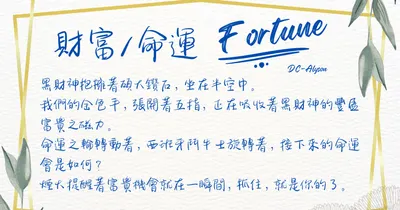 財富/命運 Fortune
DC-Alyson
黑財神抱擁著碩大鑽石，坐在半空中。
我們的金色手，張開著五指，正在吸收著黑財神的豐盛
富貴之磁力。
命運之輪轉動著，西班牙鬥牛士旋轉著，接下來的命運
會是如何？
煙火提醒著富貴機會就在一瞬間，抓住，就是你的了。